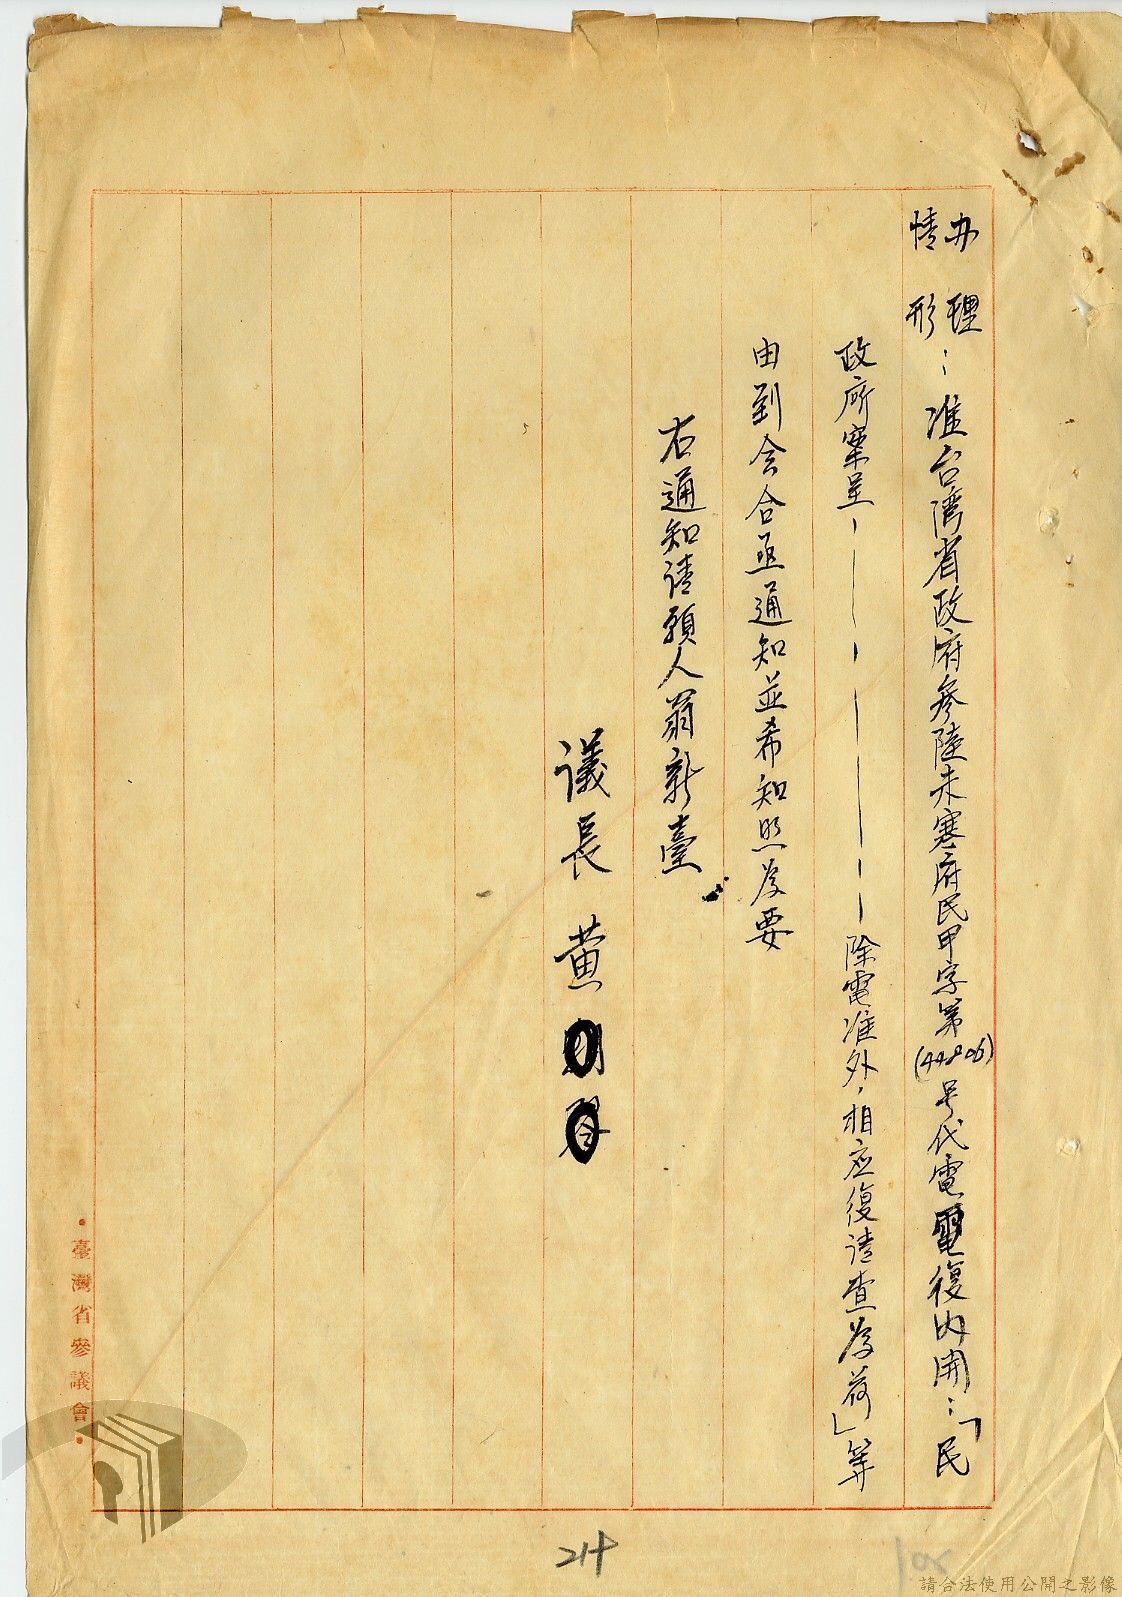 办理
情形：准台湾省政府参陸未寒府民甲字第(44806)号代電復內開：「民
政所案呈——————除電准外，相应復请查為荷」等
由到会合亟通知並希知照為要
右通知请願人翁新臺
議長 黄
・臺灣省參議會・
214
請合法使用公開之影像